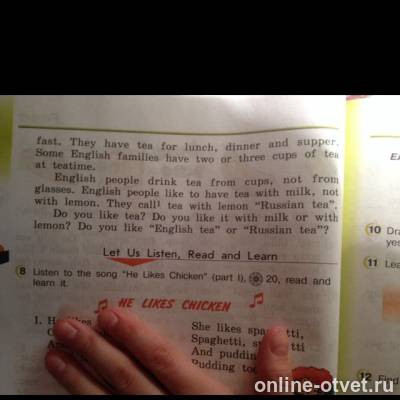 fast. They have tea for lunch, dinner and supper.
Some English families have two or three cups of tea
at teatime.
English people drink tea from cups, not from
glasses. English people like to have tea with milk, not
with lemon. They call¹ tea with lemon “Russian tea”.
Do you like tea? Do you like it with milk or with
lemon? Do you like “English tea” or “Russian tea”?
Let Us Listen, Read and Learn
8 Listen to the song “He Likes Chicken” (part I), 20, read and
learn it.
HE LIKES CHICKEN
1.
She likes
Spaghetti,
And
Pudding
10
11
12 Find
online-otvet.ru